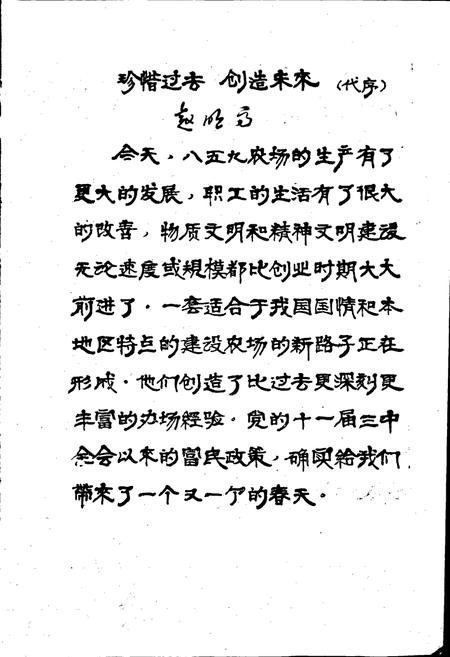 珍惜过去 创造未來（代序）
赵明高
今天，八五九农场的生产有了
更大的发展，职工的生活有了很大
的改善，物质文明和精神文明建设
无论速度或規模都比创业时期大大
前进了．一套适合于我国国情和本
地区特点的建设农场的新路子正在
形成．他们创造了比过去更深刻更
丰富的办场经验．党的十一届三中
全会以来的富民政策，确实给我们
帶來了一个又一个的春天．